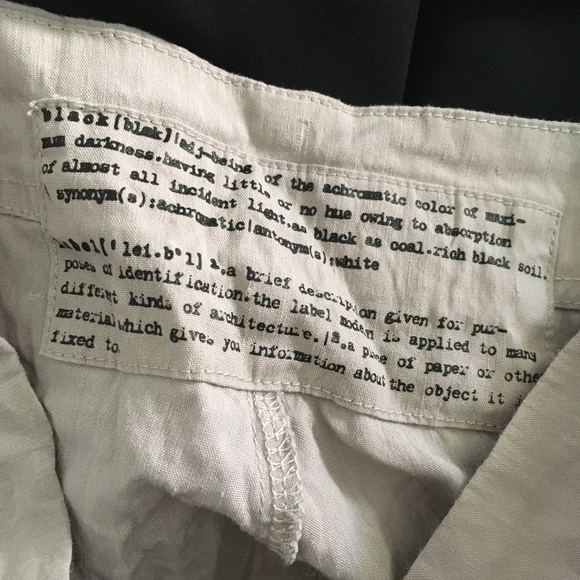 black[blæk]|adj-being of the achromatic color of maxi-
mum darkness.having little or no hue owing to absorption
of almost all incident light.as black as coal.rich black soil.
synonym(s):achromatic|antonym(s):white
label['lei.bᵊl] 1.a brief description given for pur-
poses of identification.the label modern is applied to many
different kinds of architecture./2.a piece of paper or other
material which gives you information about the object it is
fixed to